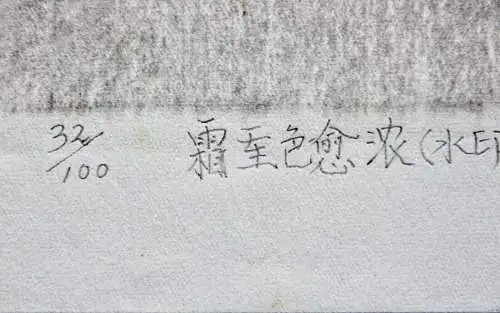 32/100 霜至色愈浓(水印